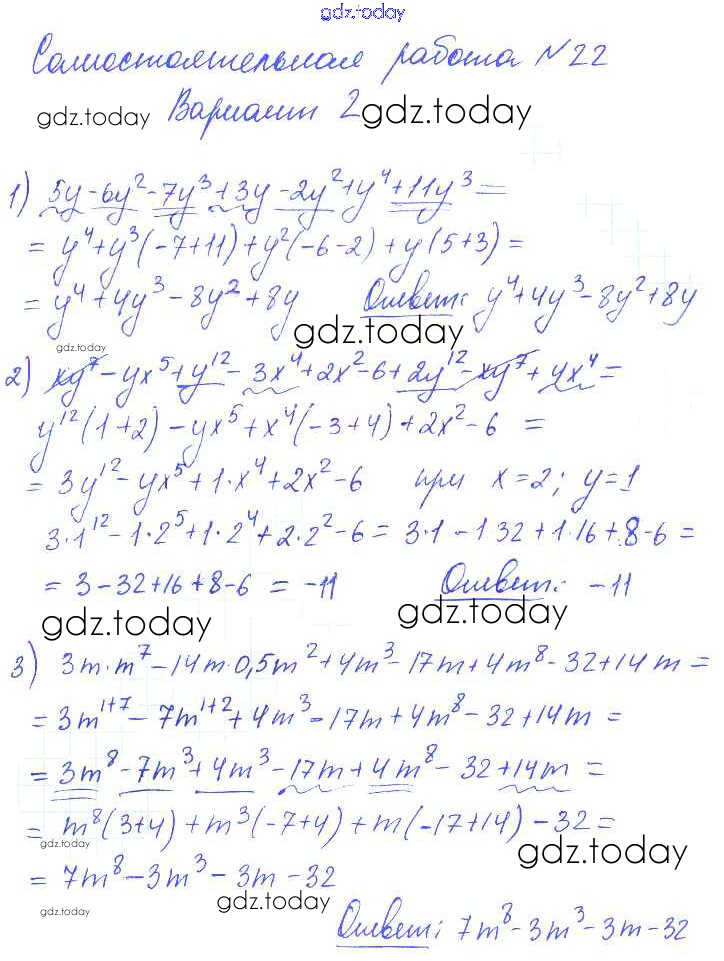 gdz.today
Самостоятельная работа №22
gdz.today Вариант 2 gdz.today
1) 5y - 6y² - 7y³ + 3y - 2y² + y⁴ + 11y³ =
= y⁴ + y³(-7+11) + y²(-6-2) + y(5+3) =
= y⁴ + 4y³ - 8y² + 8y Ответ: y⁴ + 4y³ - 8y² + 8y
gdz.today gdz.today
2) xy⁷ - yx⁵ + y¹² - 3x⁴ + 2x² - 6 + 2y¹² - xy⁷ + 4x⁴ =
y¹²(1+2) - yx⁵ + x⁴(-3+4) + 2x² - 6 =
= 3y¹² - yx⁵ + 1·x⁴ + 2x² - 6 при x=2; y=1
3·1¹² - 1·2⁵ + 1·2⁴ + 2·2² - 6 = 3·1 - 1 32 + 1·16 + 8 - 6 =
= 3 - 32 + 16 + 8 - 6 = -11 Ответ: -11
gdz.today gdz.today
3) 3m·m⁷ - 14m·0,5m² + 4m³ - 17m + 4m⁸ - 32 + 14m =
= 3m¹⁺⁷ - 7m¹⁺² + 4m³ - 17m + 4m⁸ - 32 + 14m =
= 3m⁸ - 7m³ + 4m³ - 17m + 4m⁸ - 32 + 14m =
= m⁸(3+4) + m³(-7+4) + m(-17+14) - 32 =
gdz.today gdz.today
= 7m⁸ - 3m³ - 3m - 32
gdz.today gdz.today
Ответ: 7m⁸ - 3m³ - 3m - 32